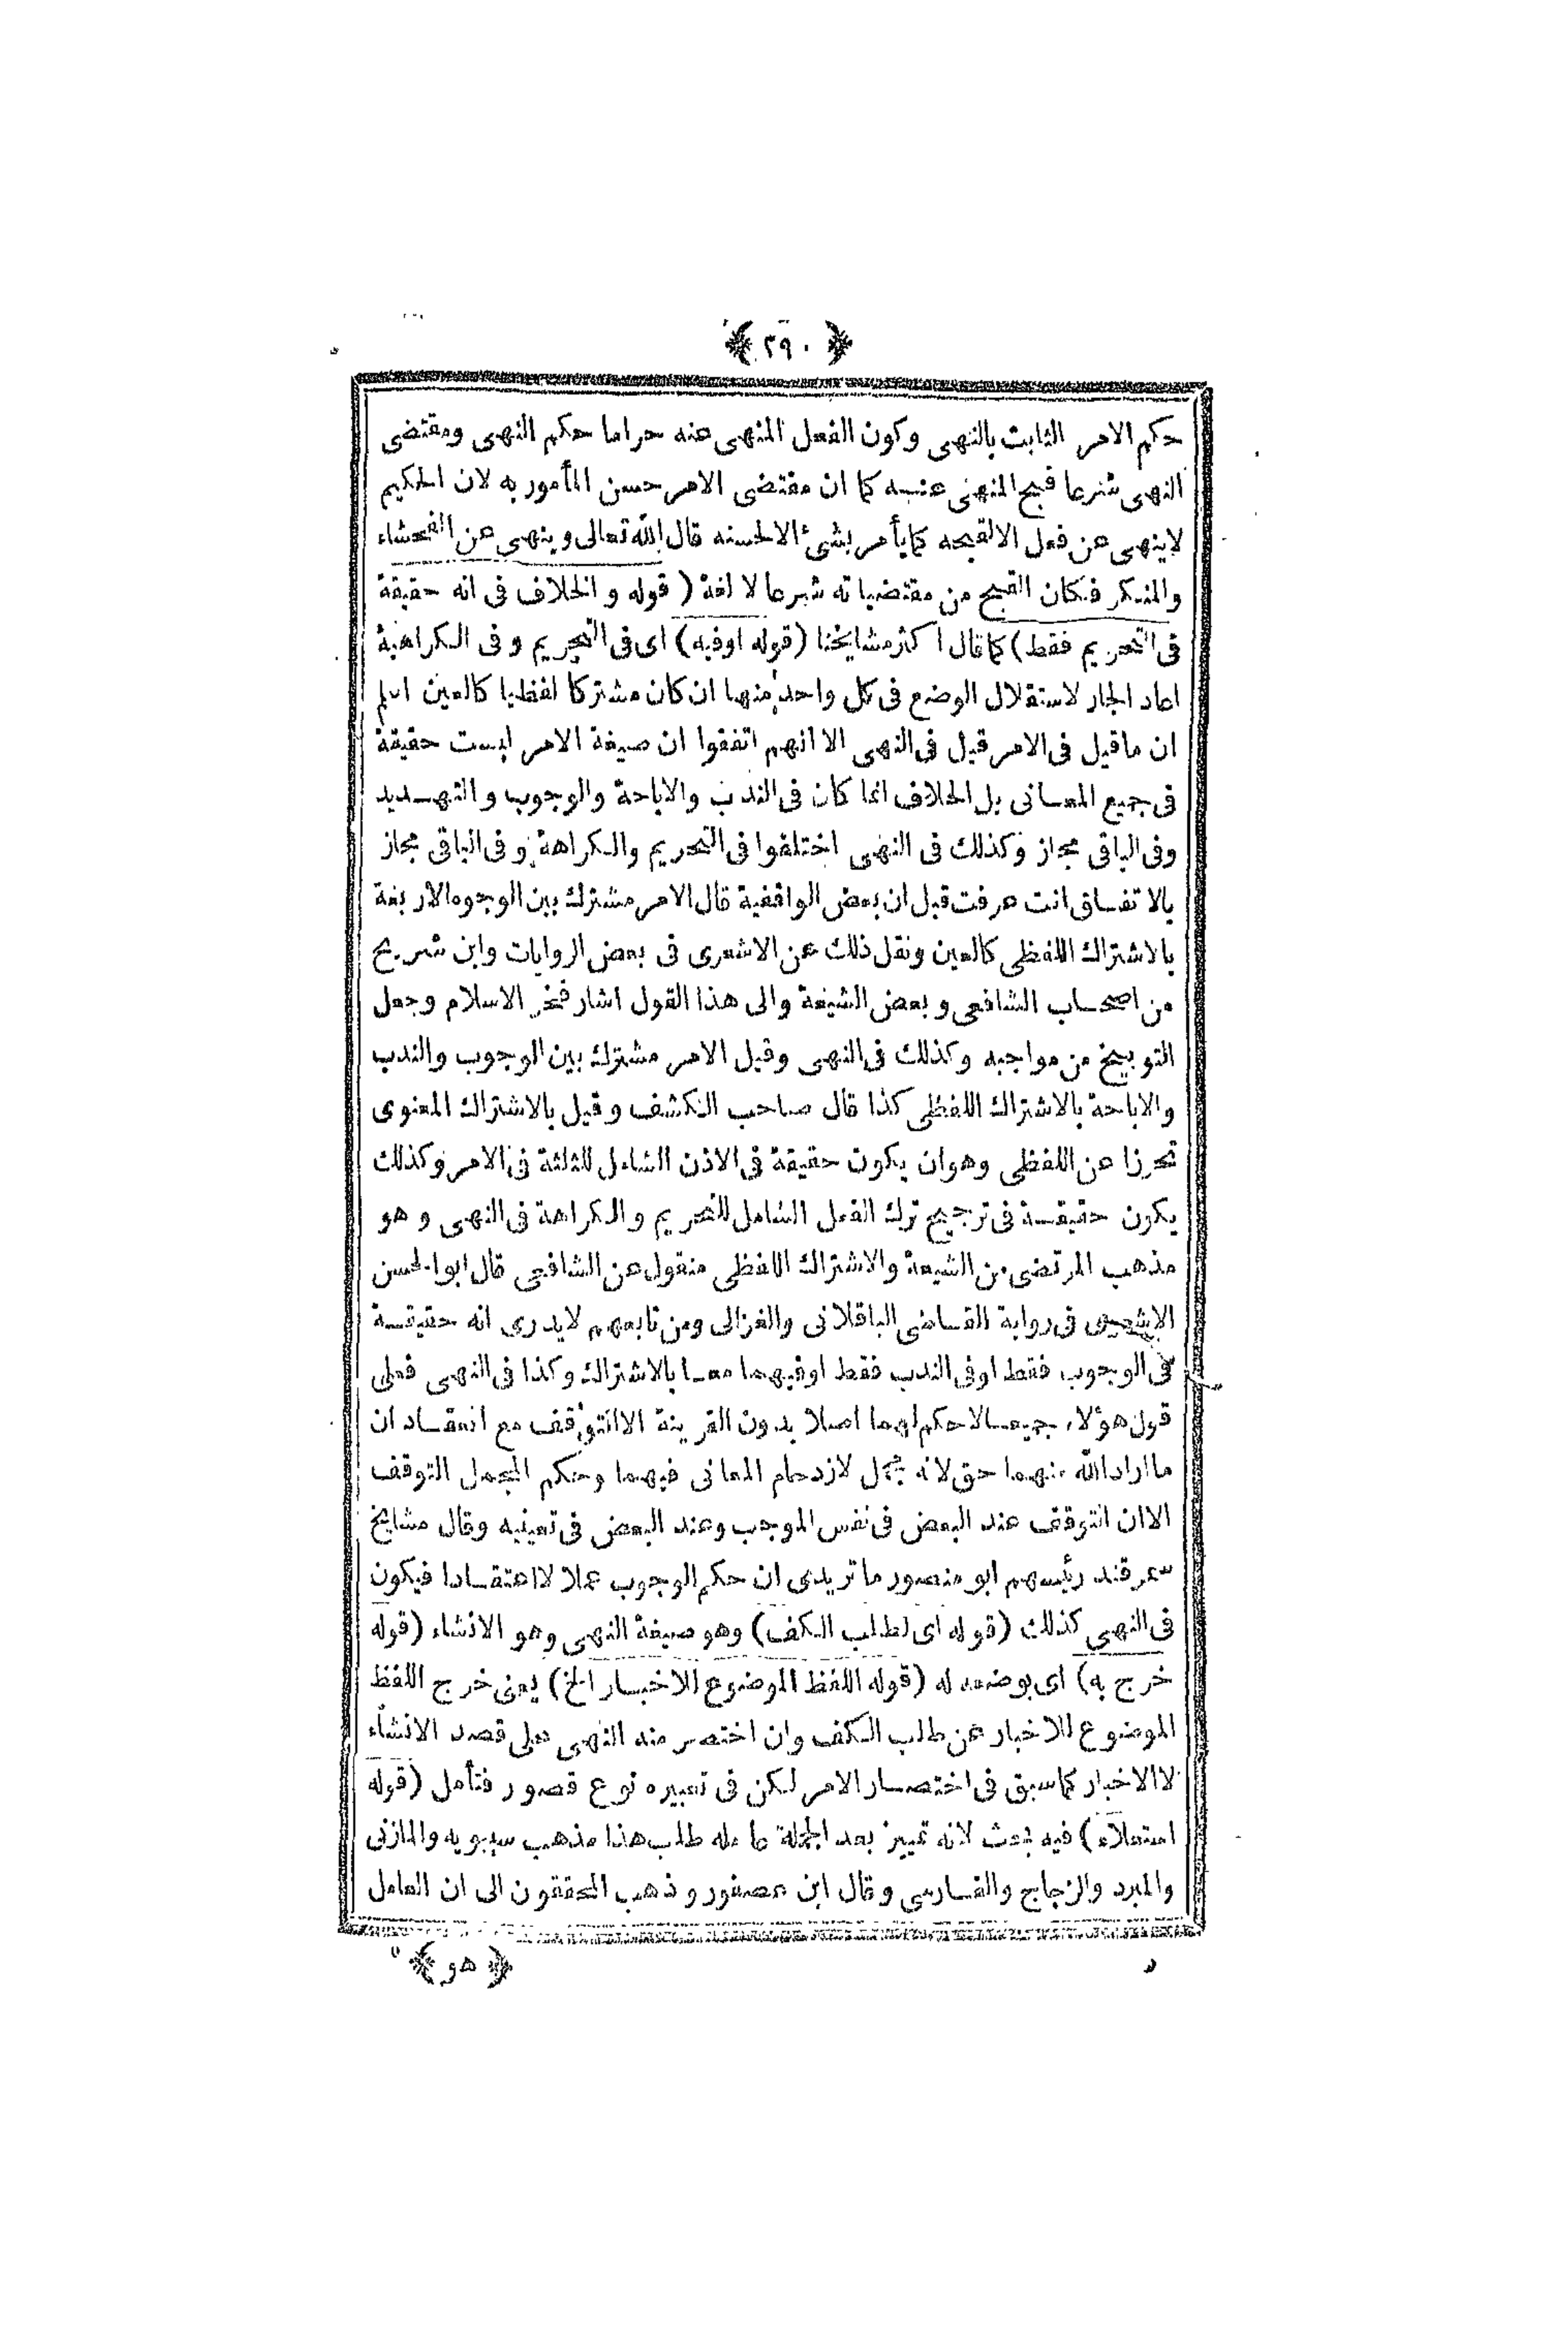 ﴿ ٢٩٠ ﴾
حكم الامر الثابت بالنهى وكون الفعل المنهى عنه حراما حكم النهى ومقتضى
النهى شرعا قبح المنهى عنه كما ان مقتضى الامر حسن المأمور به لان الحكيم
لاينهى عن فعل الالقبحه كمايأمر بشئ الالحسنه قال الله تعالى وينهى عن الفحشاء
والمنكر فكان القبح من مقتضياته شرعا لا لغة (قوله والخلاف فى انه حقيقة
فى التحريم فقط) كماقال اكثر مشايخنا (قوله اوفيه) اى فى التحريم وفى الكراهية
اعاد الجار لاستقلال الوضع فى كل واحد منها ان كان مشتركا لفظيا كالعين اعلم
ان ماقيل فى الامر قيل فى النهى الا انهم اتفقوا ان صيغة الامر ليست حقيقة
فى جميع المعانى بل الخلاف انما كان فى الندب والاباحة والوجوب والتهديد
وفى الباقى مجاز وكذلك فى النهى اختلفوا فى التحريم والكراهة وفى الباقى مجاز
بالاتفاق انت عرفت قبل ان بعض الواقفية قال الامر مشترك بين الوجوه الاربعة
بالاشتراك اللفظى كالعين ونقل ذلك عن الاشعرى فى بعض الروايات وابن شريح
من اصحاب الشافعى وبعض الشيعة والى هذا القول اشار فخر الاسلام وجعل
التوبيخ من مواجبه وكذلك فى النهى وقيل الامر مشترك بين الوجوب والندب
والاباحة بالاشتراك اللفظى كذا قال صاحب الكشف وقيل بالاشتراك المعنوى
تحرزا عن اللفظى وهوان يكون حقيقة فى الاذن الشامل للثلثة فى الامر وكذلك
يكون حقيقة فى ترجيح ترك الفعل الشامل للتحريم والكراهة فى النهى وهو
مذهب المرتضى من الشيعة والاشتراك اللفظى منقول عن الشافعى قال ابوالحسن
الاشعرى فى رواية القاضى الباقلانى والغزالى ومن تابعهم لايدرى انه حقيقة
فى الوجوب فقط اوفى الندب فقط اوفيهما معا بالاشتراك وكذا فى النهى فعلى
قول هؤلاء جميعا لاحكم لهما اصلا بدون القرينة الاالتوقف مع انعقاد ان
مااراد الله منهما حق لانه مجمل لازدحام المعانى فيهما وحكم المجمل التوقف
الاان التوقف عند البعض فى نفس الموجب وعند البعض فى تعيينه وقال مشايخ
سمرقند رئيسهم ابو منصور ماتريدى ان حكم الوجوب عملا لااعتقادا فيكون
فى النهى كذلك (قوله اى لطلب الكف) وهو صيغة النهى وهو الانشاء (قوله
خرج به) اى بوضعه له (قوله اللفظ الموضوع للاخبار الخ) يعنى خرج اللفظ
الموضوع للاخبار عن طلب الكف وان اختصر منه النهى على قصد الانشاء
لاالاخبار كماسبق فى اختصار الامر لكن فى تعبيره نوع قصور فتأمل (قوله
استعلاء) فيه بحث لانه تمييز بعد الجملة عامله طلب هذا مذهب سيبويه والمازنى
والمبرد والزجاج والفارسى وقال ابن عصفور وذهب المحققون الى ان العامل
﴿ هو ﴾